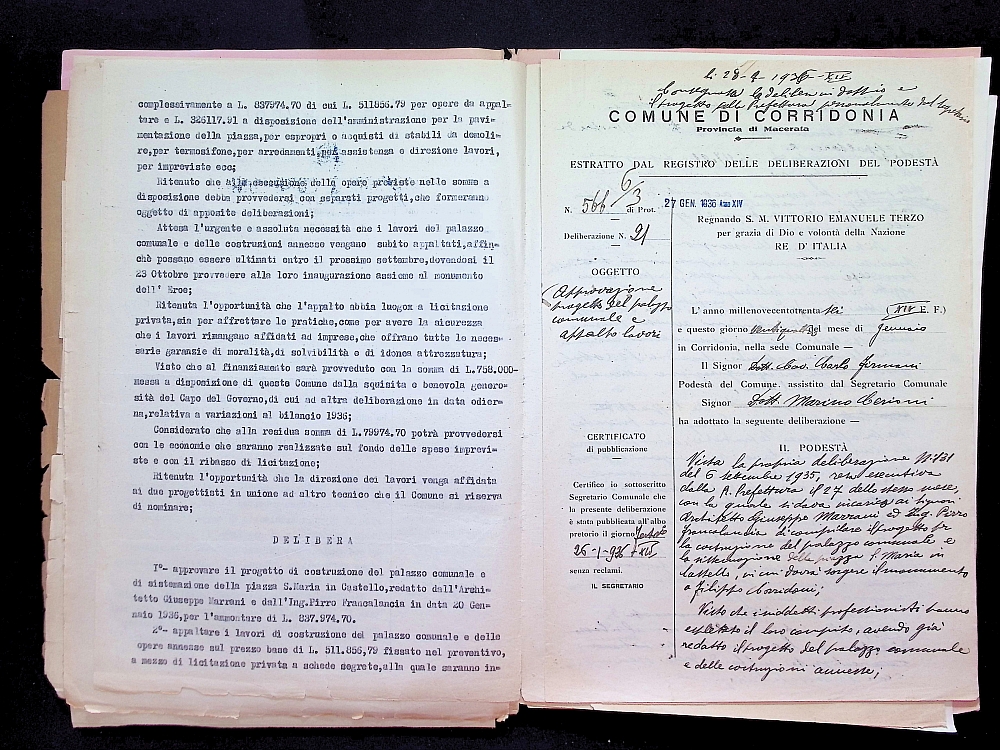 complessivamente a L. 837974.70 di cui L. 511856.79 per opere da appal-
tare e L. 326117.91 a disposizione dell'amministrazione per la pavi-
mentazione della piazza,per espropri o acquisti di stabili da demoli-
re,per termosifone,per arredamenti,per assistenza e direzione lavori,
per impreviste ecc;
Ritenuto che alla esecuzione delle opere previste nelle somme a
disposizione debba provvedersi con separati progetti,che formeranno
oggetto di apposite deliberazioni;
Attesa l'urgente e assoluta necessità che i lavori del palazzo
comunale e delle costruzioni annesse vengano subito appaltati,affin-
chè possano essere ultimati entro il prossimo settembre,dovendosi il
23 Ottobre provvedere alla loro inaugurazione assieme al monumento
dell' Eroe;
Ritenuta l'opportunità che l'appalto abbia luogox a licitazione
privata,sia per affrettare le pratiche,come per avere la sicurezza
che i lavori rimangano affidati ad imprese,che offrano tutte le neces-
sarie garanzie di moralità,di solvibilità e di idonea attrezzatura;
Visto che al finanziamento sarà provveduto con la somma di L.758.000-
messa a disposizione di questo Comune dalla squisita e benevola genero-
sità del Capo del Governo,di cui ad altra deliberazione in data odier-
na,relativa a variazioni al bilancio 1936;
Considerato che alla residua somma di L.79974.70 potrà provvedersi
con le economie che saranno realizzate sul fondo delle spese imprevi-
ste e con il ribasso di licitazione;
Ritenuta l'opportunità che la direzione dei lavori venga affidata
ai due progettisti in unione ad altro tecnico che il Comune si riserva
di nominare;
D E L I B E R A
I°- approvare il progetto di costruzione del palazzo comunale e
di sistemazione della piazza S.Maria in Castello,redatto dall'Archi-
tetto Giuseppe Marrani e dall'Ing.Pirro Francalancia in data 20 Gen-
naio 1936,per l'ammontare di L. 837.974.70.
2°- appaltare i lavori di costruzione del palazzo comunale e delle
opere annesse sul prezzo base di L. 511.856,79 fissato nel preventivo,
a mezzo di licitazione privata a schede segrete,alla quale saranno in-
Consegnata la deliber. in doppio e
il progetto alla Prefettura personalmente dal
COMUNE DI CORRIDONIA
Provincia di Macerata
ESTRATTO DAL REGISTRO DELLE DELIBERAZIONI DEL PODESTÀ
N. 566 6/3 di Prot. 27 GEN. 1936 Anno XIV
Deliberazione N. 21
Regnando S. M. VITTORIO EMANUELE TERZO
per grazia di Dio e volontà della Nazione
RE D' ITALIA
OGGETTO
Approvazione
progetto del palazzo
comunale e
appalto lavori
L' anno millenovecentotrenta sei (XIV E. F.)
e questo giorno del mese di Gennaio
in Corridonia, nella sede Comunale —
Il Signor Dott. Cav. Carlo Firmani
Podestà del Comune assistito dal Segretario Comunale
Signor Dott. Marino Cerioni
ha adottato la seguente deliberazione —
CERTIFICATO
di pubblicazione
Certifico io sottoscritto
Segretario Comunale che
la presente deliberazione
è stata pubblicata all'albo
pretorio il giorno
26-1-936 XIV
senza reclami.
IL SEGRETARIO
IL PODESTÀ
Vista la propria deliberazione N.
del 6 settembre 1935, resa esecutiva
dalla R. Prefettura il 27 dello stesso mese,
con la quale si dava incarico ai signori
Architetto Giuseppe Marrani ed Ing. Pirro
Francalancia di compilare il progetto per
la costruzione del palazzo comunale e
la sistemazione della piazza S. Maria in
Castello, in cui dovrà sorgere il monumento
a Filippo Corridoni;
Visto che i suddetti professionisti hanno
espletato il loro compito, avendo già
redatto il progetto del palazzo comunale
e delle costruzioni annesse;